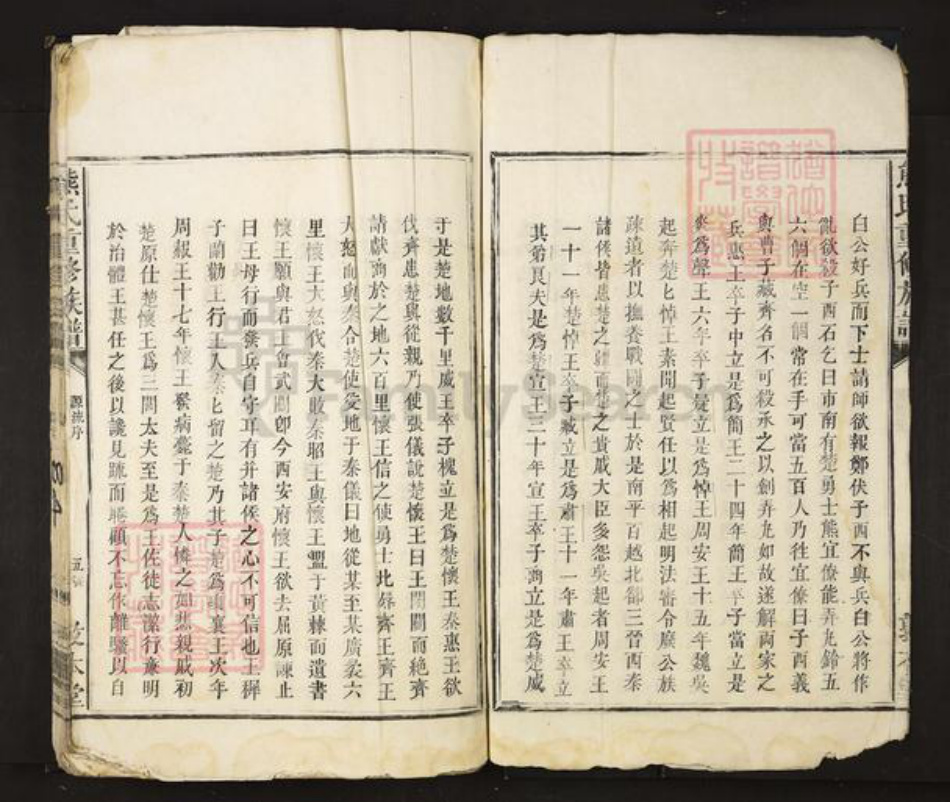 白公好兵而下士請師欲報鄭伏子西不與兵白公將作
亂欲殺子西石乞曰市南有楚勇士熊宜僚能弄九鈴五
六個在空一個常在手可當五百人乃徃宜僚曰子西義
與曹子臧齊名不可殺承之以劍弄九如故遂解兩家之
兵惠王卒子中立是爲簡王二十四年簡王卒子當立是
爲聲王六年卒子疑立是爲悼王周安王十五年魏吳
起奔楚楚悼王素聞起賢任以爲相起明法審令廢公族
疎遠者以撫養戰鬪之士於是南平百越北卻三晉西秦
諸侯皆患楚之疆而楚之貴戚大臣多怨吳起者周安王
二十一年楚悼王卒子臧立是爲肅王十一年肅王卒立
其弟良夫是爲楚宣王三十年宣王卒子商立是爲楚威
于是楚地數千里威王卒子槐立是爲楚懷王秦惠王欲
伐齊患楚與從親乃使張儀說楚懷王曰王閉關而絶齊
請獻商於之地六百里懷王信之使勇士北辱齊王齊王
大怒而與秦合楚使受地于秦儀曰地從某至某廣袤六
里懷王大怒伐秦大敗秦昭王與懷王盟于黃棘而遺書
懷王願與君王會武關卽今西安府懷王欲去屈原諫止
曰王母行而發兵自守耳有并諸侯之心不可信也王稺
子蘭勸王行王入秦秦留之楚乃其子楚爲頃襄王次年
周赧王十七年懷王發病薨于秦楚人憐之如悲親戚初
楚原仕楚懷王爲三閭大夫至是爲王佐徒志潔行亷明
於治體王甚任之後以讒見疎而睠顧不忘作離騷以自
熊氏重修族譜
源流序
五
熊氏重修族譜